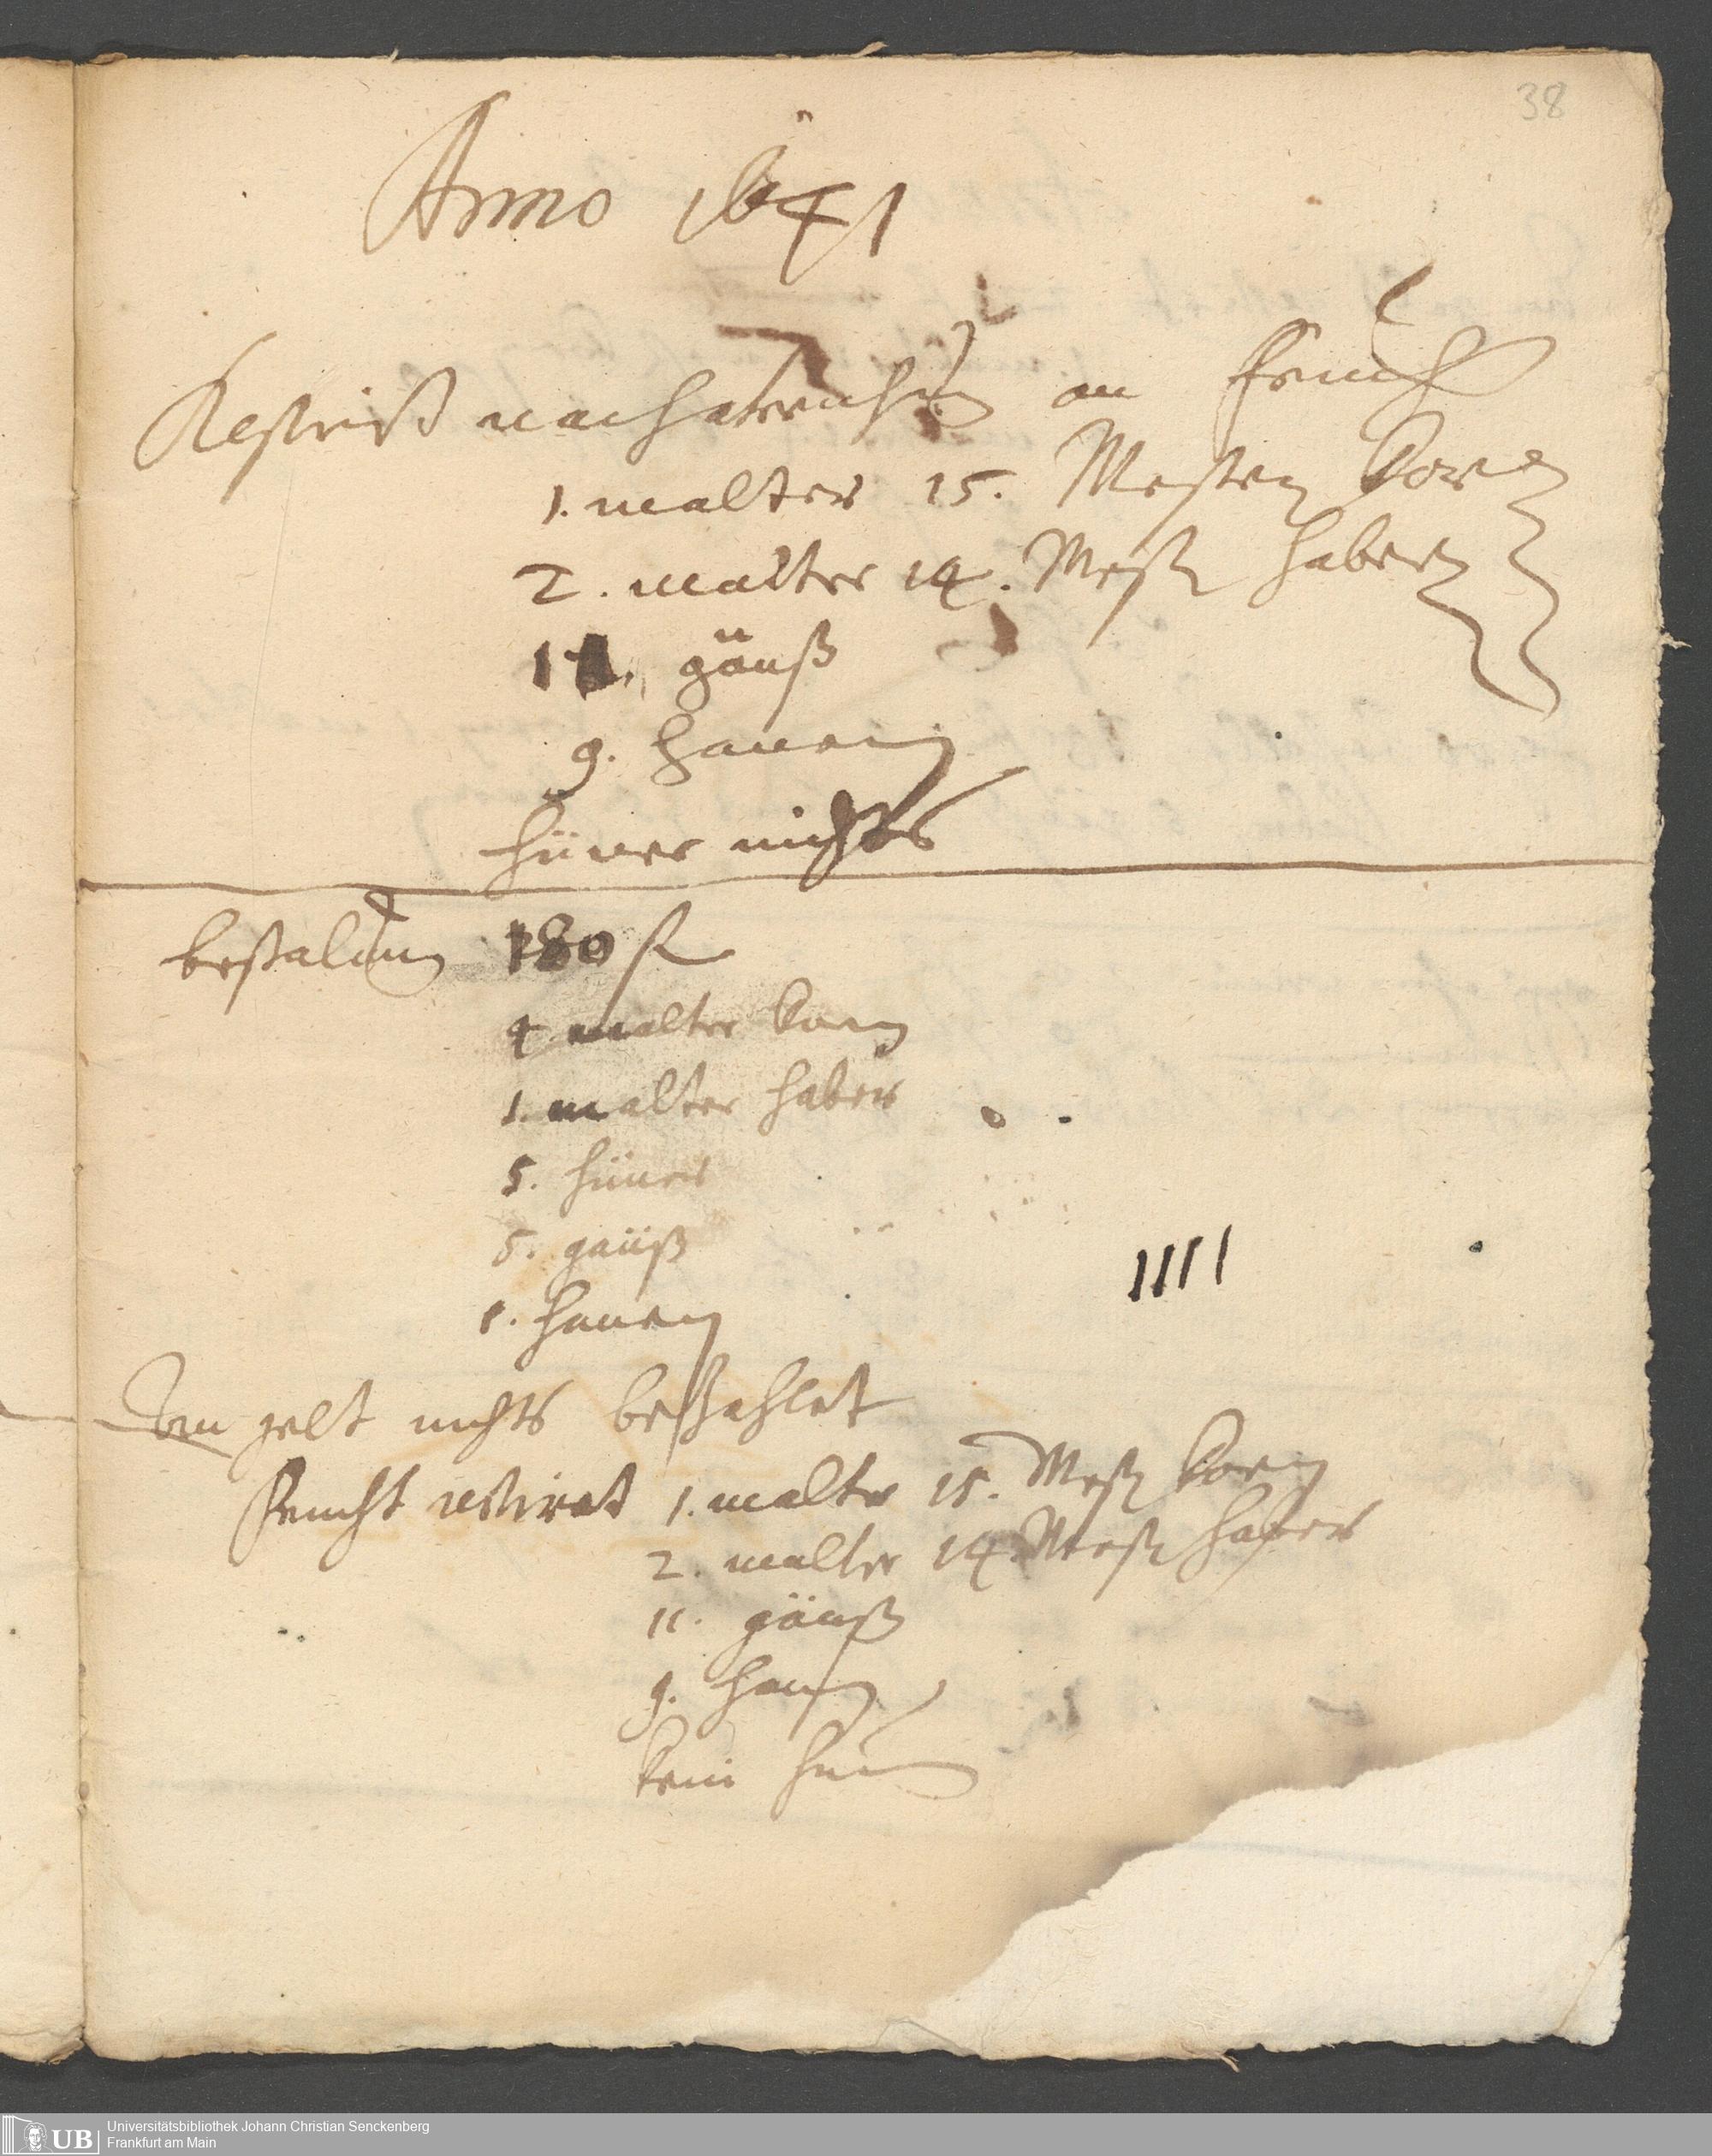 38
Anno 1641
an frucht
1. malter 15. Mesten Korn
2. malter 14. Mest habern
11. gänß
9. hanen
hüner nichts
bestalung 180 fl
4 malter Korn
1. malter haber
5. hüner
5. gänß
1. hanen
IIII
An gelt nichts bezahlet
frucht restiret 1. malter 15. Mest Korn
2. malter 14. Mest haber
11. gänß
9. hanen
Kein hun
UB Universitätsbibliothek Johann Christian Senckenberg
Frankfurt am Main